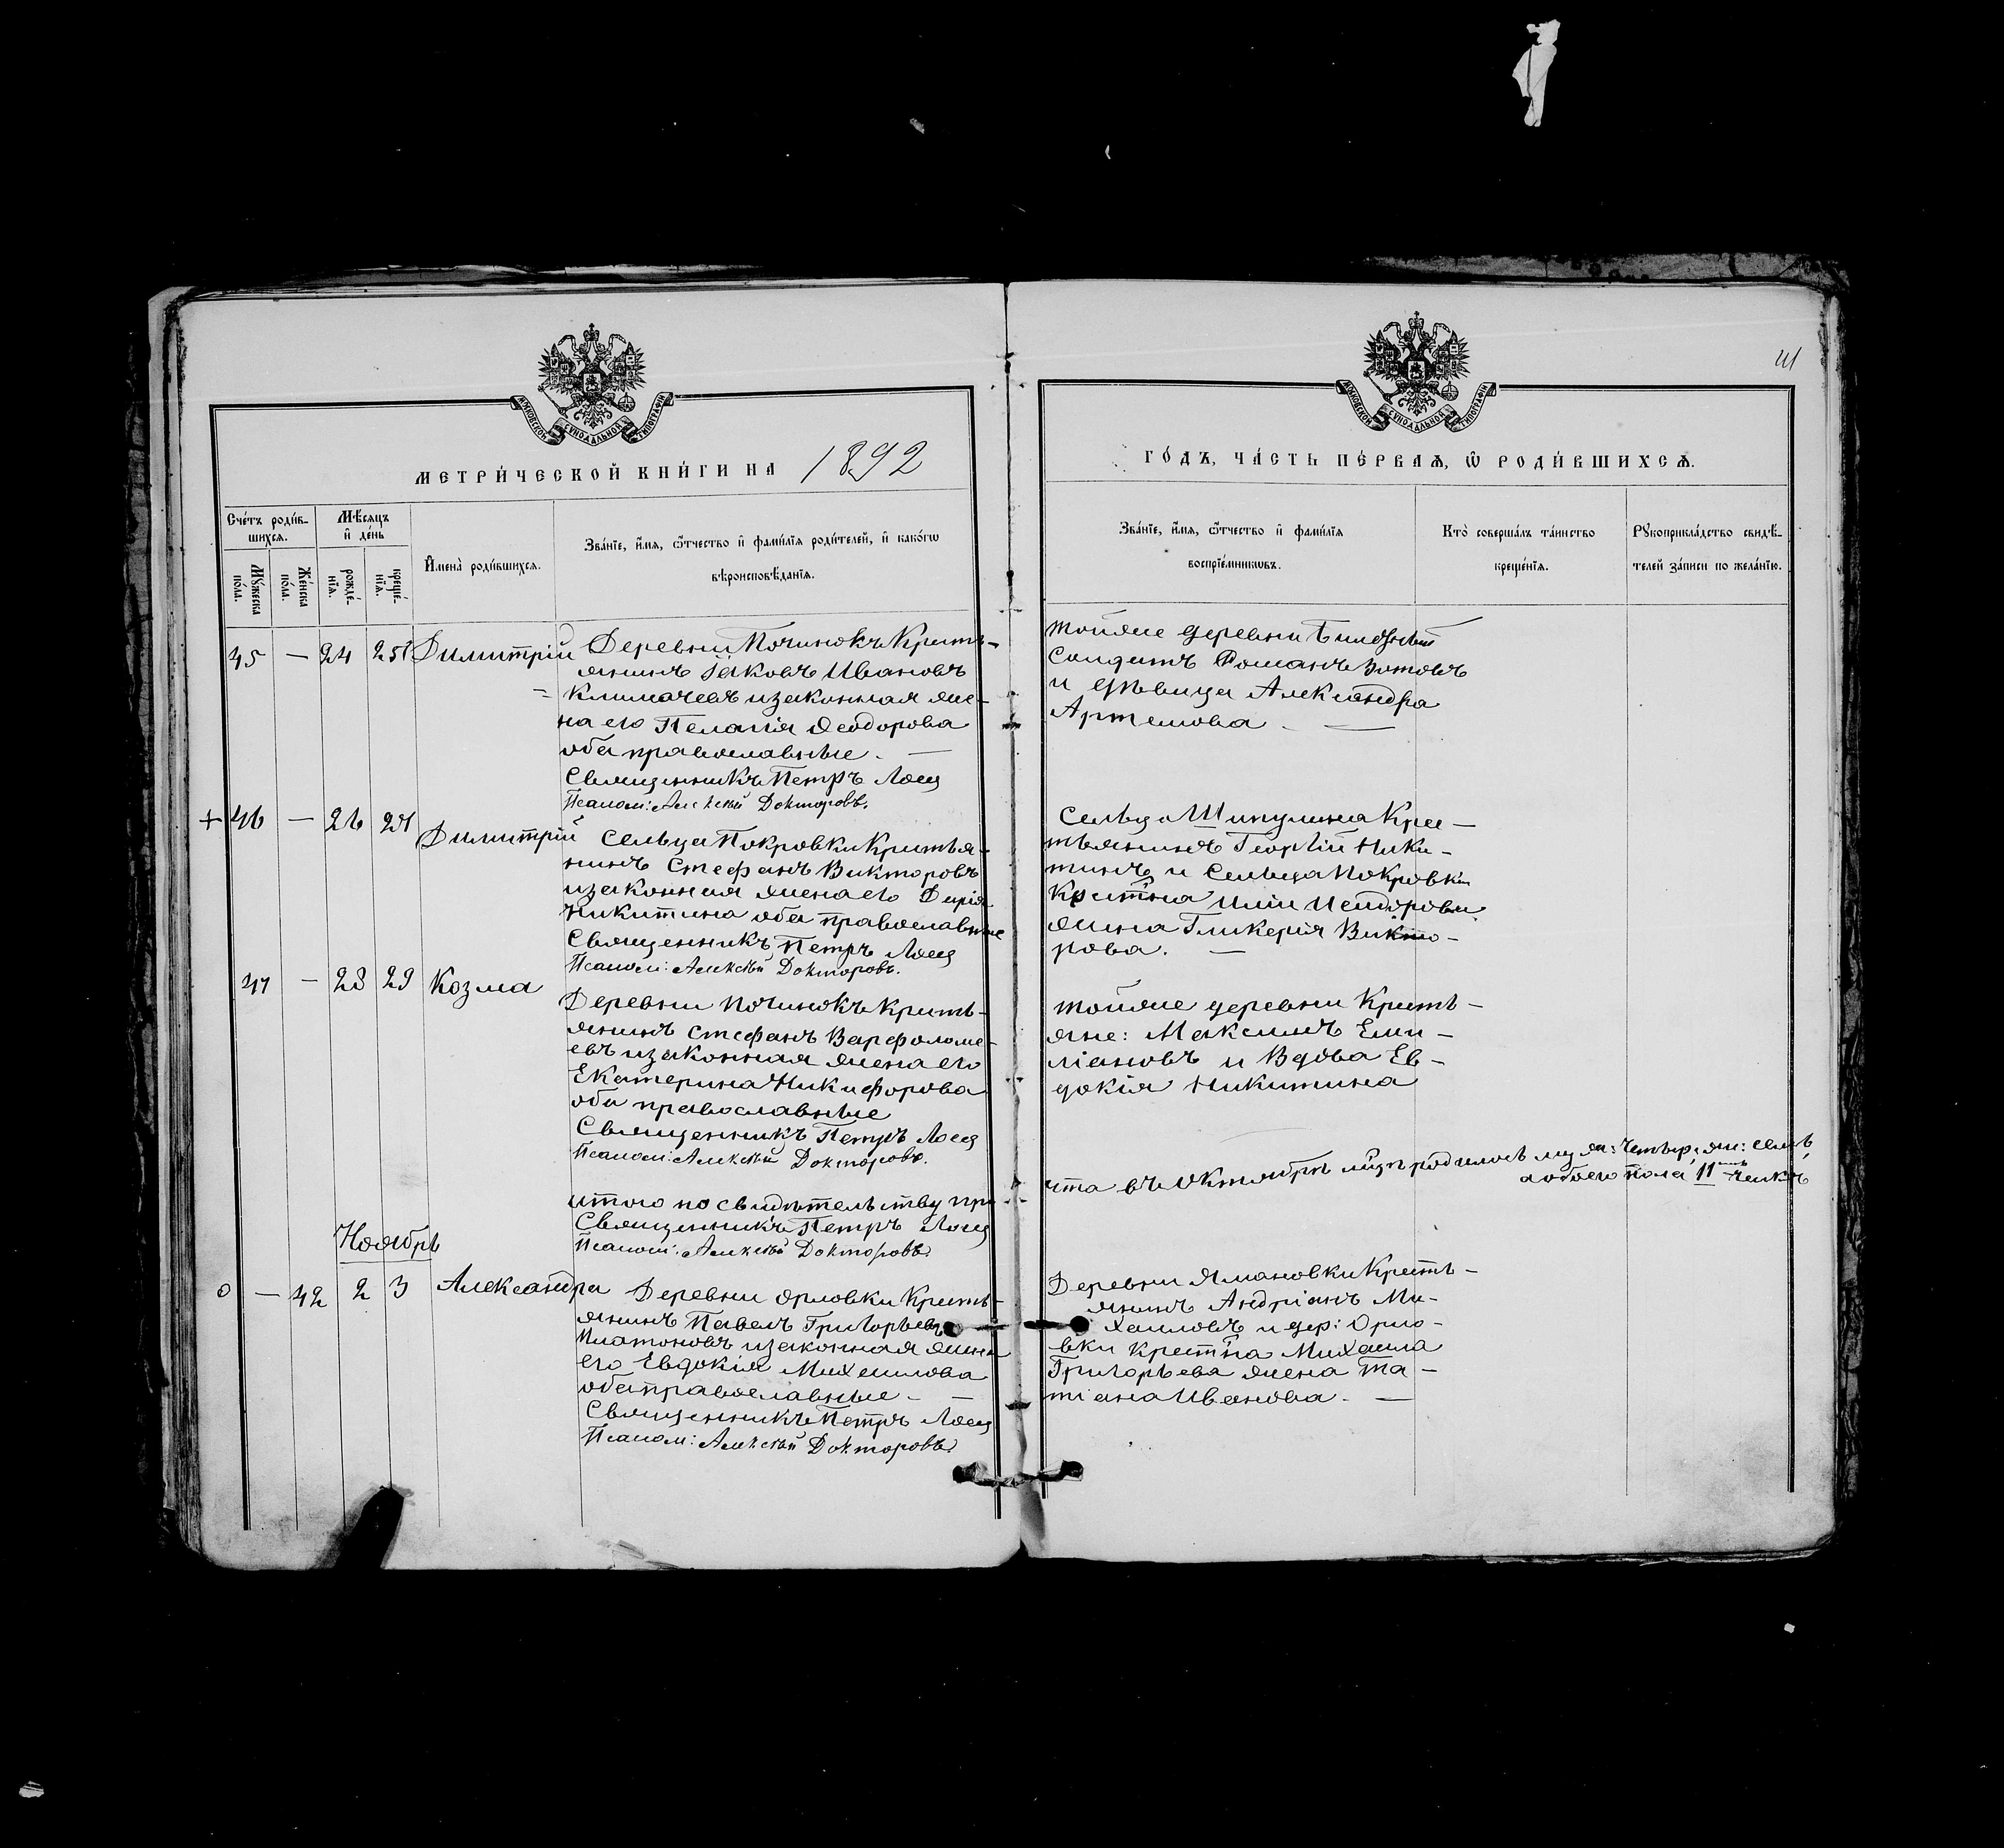 МОСКОВСКОЙ СУНОДАЛЬНОЙ ТИПОГРАФІИ
МЕТРИ́ЧЕСКОЙ КНИ́ГИ НА 1892
Сче́тъ роди́в-
шихсѧ.
Мѣ́сѧцъ
и҆ де́нь
Мꙋ́жеска
по́ла.
Же́нска
по́ла.
рожде́-
нїѧ.
креще́-
нїѧ.
И҆мена̀ роди́вшихсѧ.
Зва́нїе, и҆́мѧ, ѻ҆́тчество и҆ фами́лїѧ роди́телей, и҆ како́гѡ
вѣроисповѣ́данїѧ.
45 — 24 25 Димитрій
Деревни Починокъ Кресть-
янинъ Іаковъ Ивановъ
Климачевъ и законная же-
на его Пелагія Ѳеодорова
оба православные. —
Священникъ Петръ
Псалом: Алексѣй Докторовъ.
+ 46 — 26 27 Димитрій
Сельца Покровки Крестья-
нинъ Стефанъ Викторовъ
и законная жена его Дарія
Никитина оба православные
Священникъ Петръ
Псалом: Алексѣй Докторовъ.
47 — 28 29 Козма
Деревни Починокъ Кресть-
янинъ Стефанъ Варфоломе-
евъ и законная жена его
Екатерина Никифорова
оба православные
Священникъ Петръ
Псалом: Алексѣй Докторовъ.
итого по свидѣтельству
Священникъ Петръ
Псалом: Алексѣй Докторовъ.
Ноябрь
0 — 42 2 3 Александра
Деревни Орловки Кресть-
янинъ Павелъ Григорьевъ
Платоновъ и законная жена
его Евдокія Михаилова
оба православные. —
Священникъ Петръ
Псалом: Алексѣй Докторовъ.
МОСКОВСКОЙ СУНОДАЛЬНОЙ ТИПОГРАФІИ
ГО́ДЪ, ЧА́СТЬ ПЕ́РВАѦ, Ѡ҆ РОДИ́ВШИХСѦ.
Зва́нїе, и҆́мѧ, ѻ҆́тчество и҆ фами́лїѧ
воспрїе́мникѡвъ.
Кто̀ соверша́лъ та́инство
креще́нїѧ.
Рꙋкоприкла́дство свидѣ́-
телей за́писи по жела́нїю.
тойже деревни
Солдатъ Романъ Зотовъ
и дѣвица Александра
Артемова. —
Сельца Шипулина Крес-
тьянинъ Георгій Ники-
тинъ и Сельца Покровки
Крест̃на
жена Гликерія Викто-
рова. —
тойже деревни Кресть-
яне: Максимъ Еми-
ліановъ и Вдова Ев-
докія Никитина
въ Октябрѣ родилось муж: четыр. жен: семь,
а обоего пола 11
Деревни Ямановки Кресть-
янинъ Андріанъ Ми-
хаиловъ и дер: Орло-
вки Крест̃на Михаила
Григорьева жена Та-
тіана Иванова. —